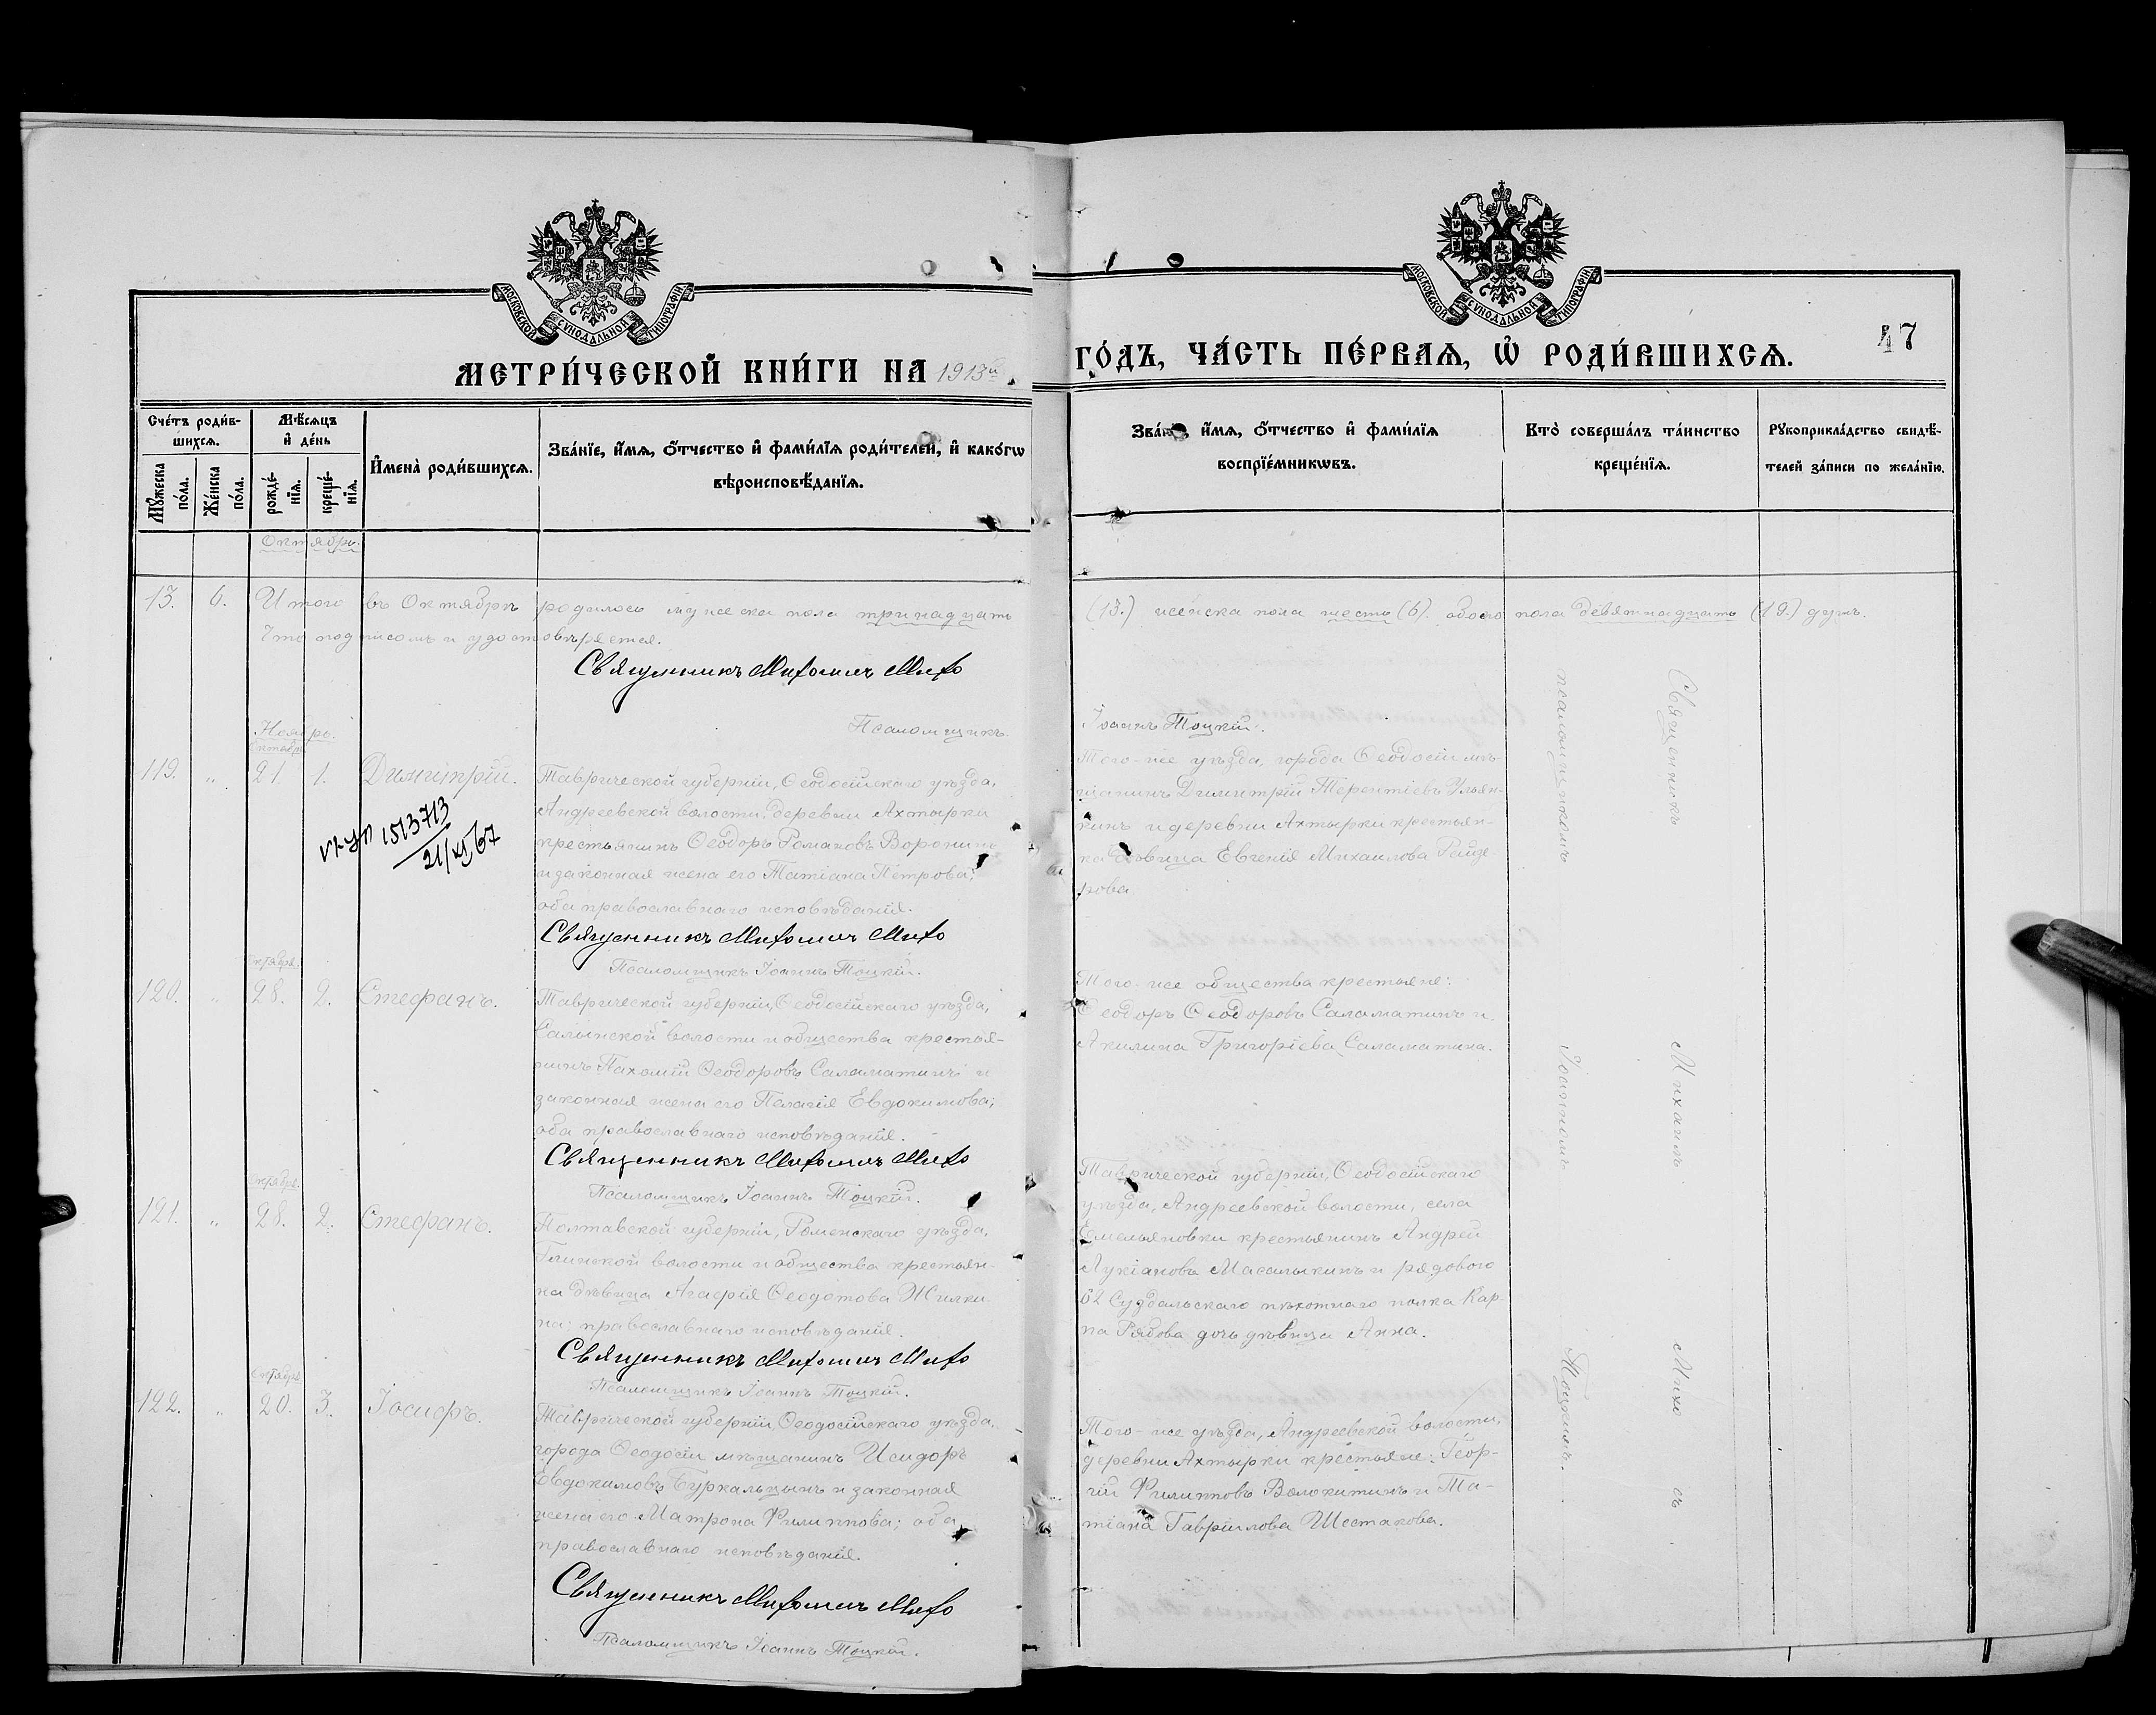 МОСКОВСКОЙ СѴНОДАЛЬНОЙ ТИПОГРАФІИ
МОСКОВСКОЙ СѴНОДАЛЬНОЙ ТИПОГРАФІИ
МЕТРИ́ЧЕСКОЙ КНИ́ГИ НА 1913й
ГО́ДЪ, ЧА́СТЬ ПЕ́РВАѦ, Ѡ҆ РОДИ́ВШИХСѦ.
47
Сче́тъ роди́в-
шихсѧ.
Мѣ́сѧцъ
и҆ де́нь
Мꙋ́жеска по́ла.
Же́нска по́ла.
рожде́-
нїѧ.
креще́-
нїѧ.
И҆мена̀ роди́вшихсѧ.
Зва́нїе, и҆́мѧ, ѻ҆́тчество и҆ фами́лїѧ роди́телей, и҆ како́гѡ
вѣроисповѣ́данїѧ.
Зва́нїе, и҆́мѧ, ѻ҆́тчество и҆ фами́лїѧ
воспрїе́мникѡвъ.
Кто̀ соверша́лъ та́инство
креще́нїѧ.
Рꙋкоприкла́дство свидѣ́-
телей за́писи по жела́нїю.
Октябрь.
13. 6. Итого въ Октябрѣ родилось мужеска пола тринадцать (13.) женска пола шесть (6). обоего пола девятнадцать (19.) душъ.
Что подписомъ и удостовѣряется.
Священникъ Михаилъ Михо
Псаломщикъ Іоаннъ Тоцкій.
Ноябрь.
Октября
119. „ 21. 1. Димитрій.
Таврической губерніи, Ѳеодосійскаго уѣзда,
Андреевской волости, деревни Ахтырки
крестьянинъ Ѳеодоръ Романовъ Воронинъ
и законная жена его Татіана Петрова;
оба православнаго исповѣданія.
Священникъ Михаилъ Михо
Псаломщикъ Іоаннъ Тоцкій.
1513713
21/XI 67
Того-же уѣзда, города Ѳеодосіи мѣ-
щанинъ Димитрій Терентіевъ Ульян-
кинъ и деревни Ахтырки крестьян-
ка дѣвица Евгенія Михаилова
рова
Октября.
120. „ 28. 2. Стефанъ.
Таврической губерніи, Ѳеодосійскаго уѣзда,
волости и общества крестья-
нинъ Пахомій Ѳеодоровъ Саламатинъ и
законная жена его Пелагія Евдокимова;
оба православнаго исповѣданія.
Священникъ Михаилъ Михо
Псаломщикъ Іоаннъ Тоцкій.
Того-же общества крестьяне:
Ѳеодоръ Ѳеодоровъ Саламатинъ и
Акилина Григоріева Саламатина.
Октября.
121. „ 28. 2. Стефанъ.
Полтавской губерніи, Роменскаго уѣзда,
Глинской волости и общества крестьян-
ка дѣвица Агафія Ѳеодотова Жилки-
на; православнаго исповѣданія.
Священникъ Михаилъ Михо
Псаломщикъ Іоаннъ Тоцкій.
Таврической губерніи, Ѳеодосійскаго
уѣзда, Андреевской волости, села
Емельяновки крестьянинъ Андрей
Лукіановъ Масалыкинъ и рядового
62 Суздальскаго пѣхотнаго полка Кар-
па Рядова дочь дѣвица Анна.
Октября
122. „ 20. 3. Іосифъ.
Таврической губерніи, Ѳеодосійскаго уѣзда,
города Ѳеодосіи мѣщанинъ Исидоръ
Евдокимовъ Буркальцынъ и законная
жена его Матрона Филиппова; оба
православнаго исповѣданія.
Священникъ Михаилъ Михо
Псаломщикъ Іоаннъ Тоцкій.
Того-же уѣзда, Андреевской волости,
деревни Ахтырки крестьяне: Геор-
гій Филипповъ Волокитинъ и Та-
тіана Гавріилова Шестакова.
Священникъ Михаилъ Михо съ
псаломщикомъ Іоанномъ Тоцкимъ.